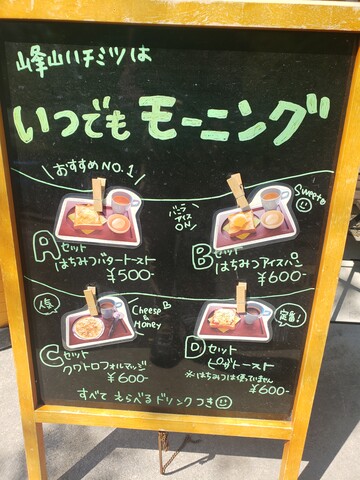 峰山ハチミツは
いつでもモーニング
おすすめNO.1
Aセット
はちみつバタートースト
¥500-
バニラアイスON
Sweet
Bセット
はちみつアイスパン
¥600-
人気
Cheese & Honey
Cセット
クワトロフォルマッジ
¥600-
定番!
Dセット
ピザトースト
※はちみつは使っていません
¥600-
すべてえらべるドリンクつき